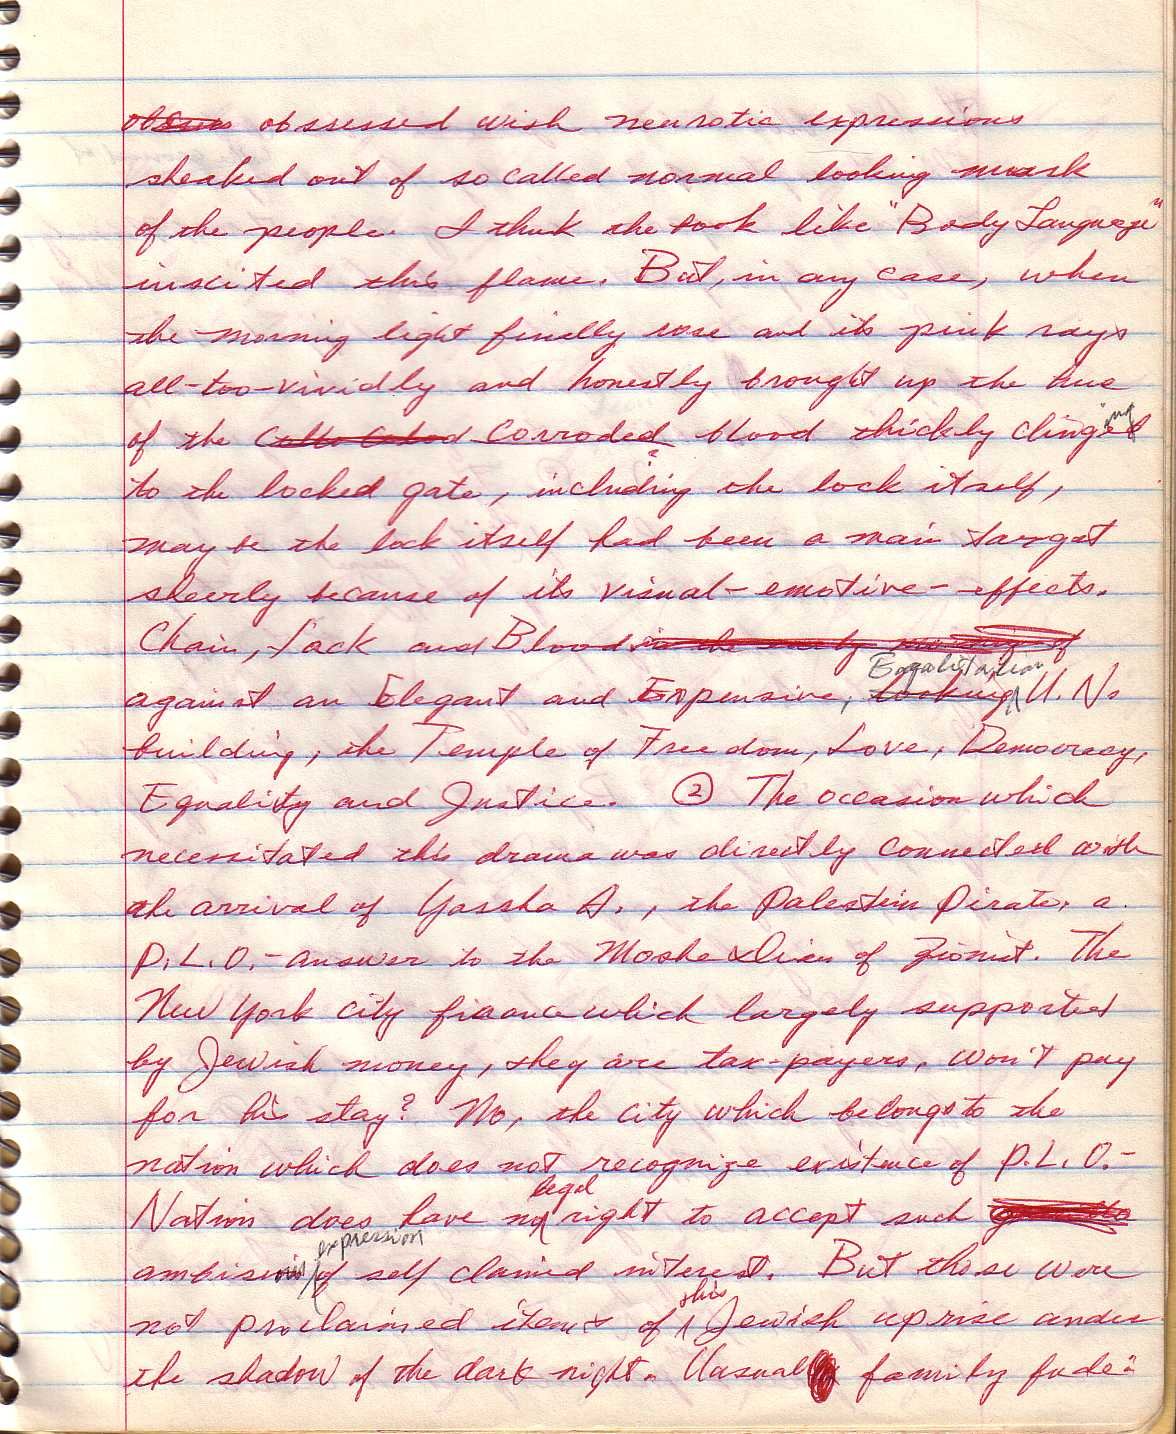 obsessed wish neurotic expressions
sheaked out of so called normal looking mask
of the people. I think the book like "Body Language"
inscited this flame. But, in any case, when
the morning light finally rose and its pink rays
all-too-vividly and honestly brought up the hue
of the corroded blood thickly clinging
to the locked gate, including the lock itself,
may be the lock itself had been a main target
sheerly because of its visual-emotive-effects.
Chain, Lack and Blood
against an Elegant and Expensive, Egalitarian U.N.
building, the Temple of Freedom, Love, Democracy,
Equality and Justice. ② The occasion which
necessitated this drama was directly connected with
the arrival of Yassha A., the Palestein Pirate, a
P.L.O.-answer to the Moshe Dien of Zionist. The
New York city finance which largely supported
by Jewish money, they are tax-payers, won't pay
for his stay? No, the city which belongs to the
nation which does not recognize existence of P.L.O.-
Nation does have no legal right to accept such
expression of self claimed interest. But those were
not proclaimed items of this Jewish uprise under
the shadow of the dark night. Unusual family fude-